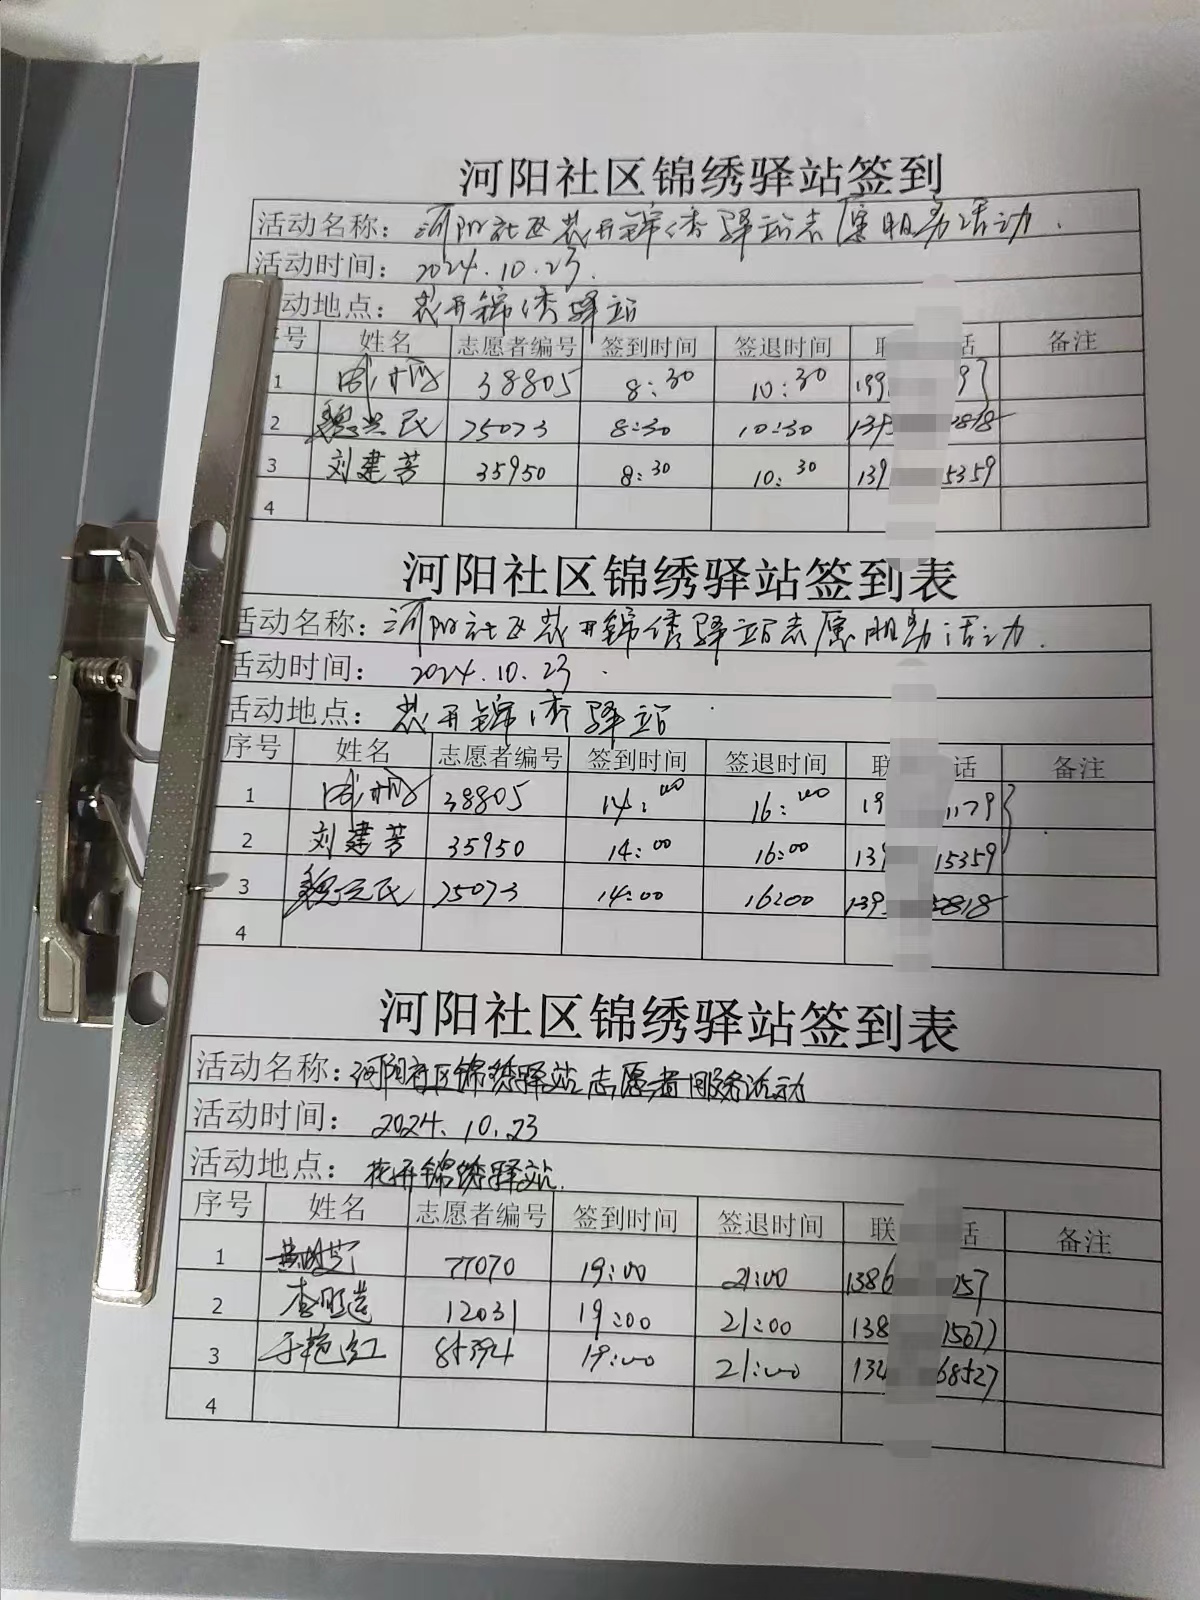 河阳社区锦绣驿站签到
活动名称：河阳社区花开锦绣驿站志愿服务活动.
活动时间：2024.10.23.
动地点：花开锦绣驿站
号 姓名 志愿者编号 签到时间 签退时间 联 话 备注
1 38805 8:30 10:30 199 97
2 魏兰民 75073 8:30 10:30 139 2818
3 刘建芳 35950 8:30 10:30 139 5359
4
河阳社区锦绣驿站签到表
活动名称：河阳社区花开锦绣驿站志愿服务活动.
活动时间：2024.10.23.
活动地点：花开锦绣驿站
序号 姓名 志愿者编号 签到时间 签退时间 联 话 备注
1 38805 14:00 16:00 19 1179
2 刘建芳 35950 14:00 16:00 139 15359
3 魏兰民 75073 14:00 16:00 139 2818
4
河阳社区锦绣驿站签到表
活动名称：河阳社区锦绣驿站志愿者服务活动
活动时间：2024.10.23
活动地点：花开锦绣驿站.
序号 姓名 志愿者编号 签到时间 签退时间 联 话 备注
1 77070 19:00 21:00 1386 057
2 李明莲 12031 19:00 21:00 138 15677
3 于艳红 85394 19:00 21:00 134 68527
4